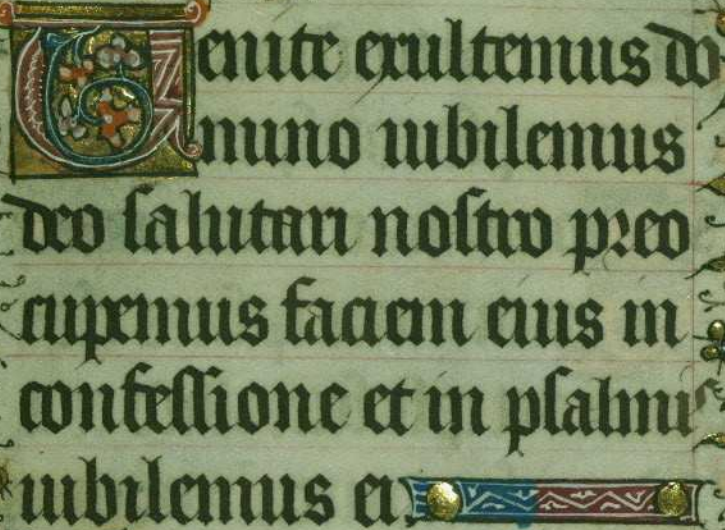 Uenite exultemus do
mino iubilemus
deo salutari nostro preo
cupemus faciem eius in
confessione et in psalmis
iubilemus ei.